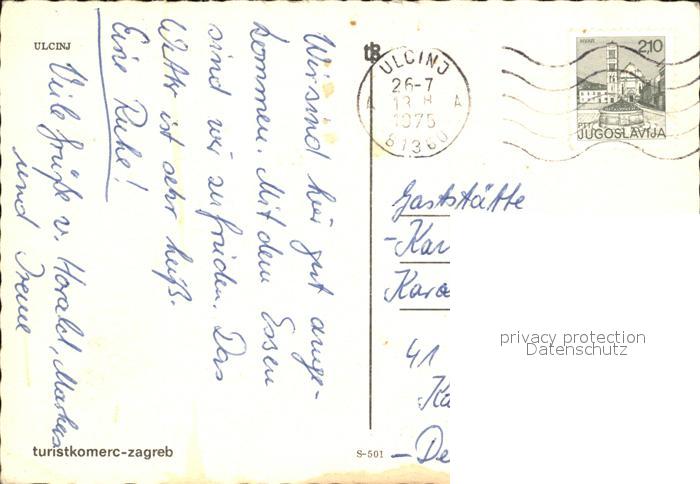 ULCINJ
Wir sind hier gut ange-
kommen. Mit dem Essen
sind wir zufrieden. Das
Wetter ist sehr heiß.
Eine Ruhe!
Viele Grüße v. Harald, Markus
und Irene
turistkomerc-zagreb
S-501
ULCINJ
26-7
A A
1975
81360
HVAR
2,10
PTT
JUGOSLAVIJA
Gaststätte
-Kar
Kara
41
Ka
-De
privacy protection
Datenschutz